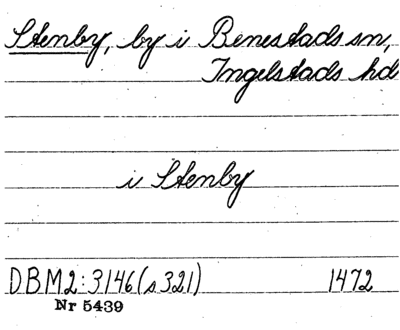 Stenby, by i Benestads sn,
Ingelstads hd
i Stenby
DBM2:3146(s 321) 1472
Nr 5439